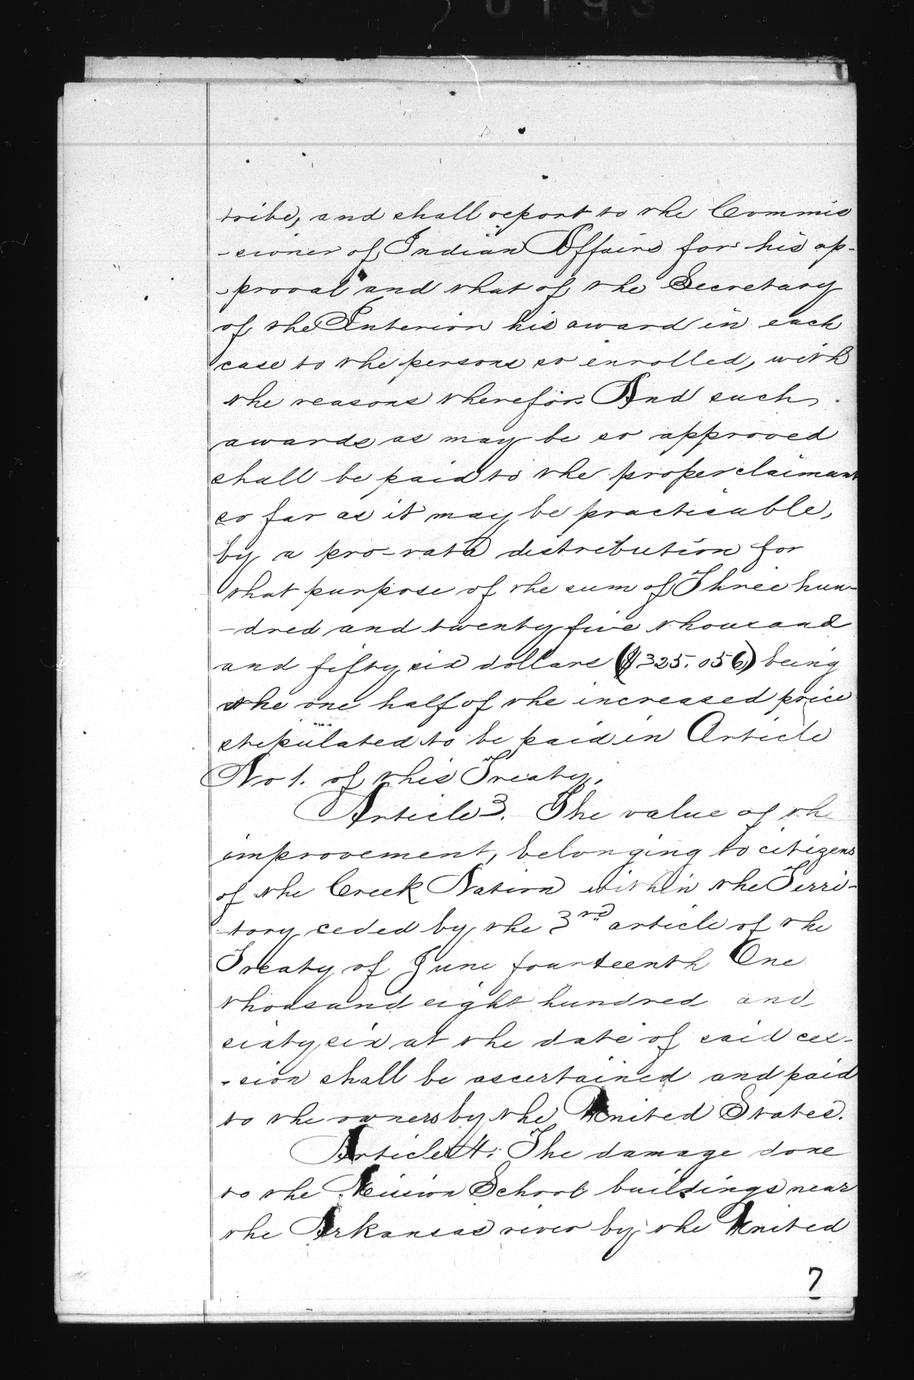 0193
tribe, and shall report to the Commis
-sioner of Indian Affairs for his ap-
-proval and that of the Secretary
of the Interior his award in each
case to the persons so enrolled, with
the reasons therefor. And such
awards as may be so approved
shall be paid to the proper claimant
so far as it may be practicable,
by a pro-rata distribution for
that purpose of the sum of Three hun-
-dred and twenty five thousand
and fifty six dollars ($325.056) being
the one half of the increased price
stipulated to be paid in Article
No 1. of this Treaty.
Article 3. The value of the
improvement, belonging to citizens
of the Creek Nation within the Terri-
tory ceded by the 3rd article of the
Treaty of June fourteenth One
thousand eight hundred and
sixty six at the date of said ces-
-sion shall be ascertained and paid
to the owners by the United States.
Article 4. The damage done
to the Mission School buildings near
the Arkansas river by the United
7